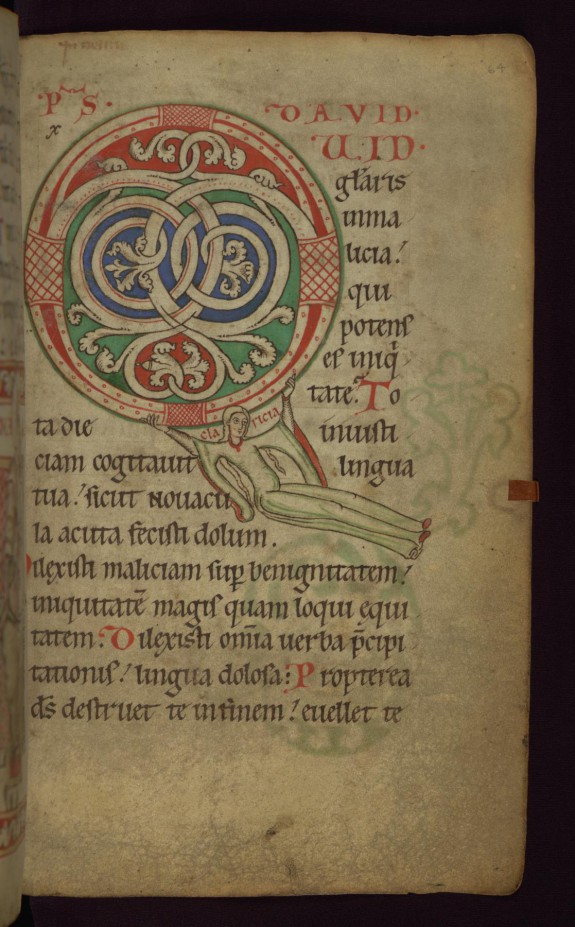 64
PS. DAVID.
x
QUID.
głaris
inma
licia:
qui
potens
es iniq̇
tate. To
ta die iniusti
claricia
ciam cogitauit lingua
tua: sicut nouacu
la acuta fecisti dolum.
Dilexisti maliciam sup̲ benignitatem:
iniquitatē magis quam loqui equi
tatem: Dilexisti om̄ia uerba p̄cipi
tationis: lingua dolosa: Propterea
d̄s destruet te infinem: euellet te